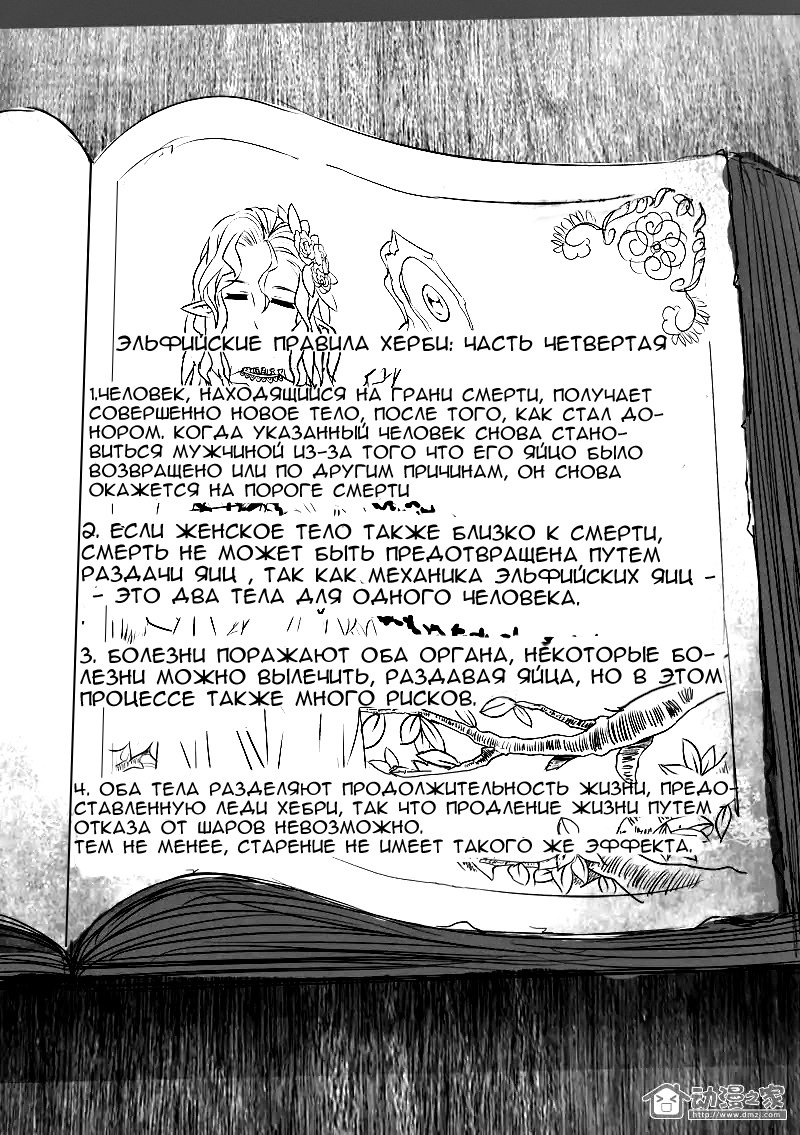 ЭЛЬФИЙСКИЕ ПРАВИЛА ХЕРБИ: ЧАСТЬ ЧЕТВЕРТАЯ
1.ЧЕЛОВЕК, НАХОДЯЩИЙСЯ НА ГРАНИ СМЕРТИ, ПОЛУЧАЕТ
СОВЕРШЕННО НОВОЕ ТЕЛО, ПОСЛЕ ТОГО, КАК СТАЛ ДО-
НОРОМ. КОГДА УКАЗАННЫЙ ЧЕЛОВЕК СНОВА СТАНО-
ВИТЬСЯ МУЖЧИНОЙ ИЗ-ЗА ТОГО ЧТО ЕГО ЯЙЦО БЫЛО
ВОЗВРАЩЕНО ИЛИ ПО ДРУГИМ ПРИЧИНАМ, ОН СНОВА
ОКАЖЕТСЯ НА ПОРОГЕ СМЕРТИ
2. ЕСЛИ ЖЕНСКОЕ ТЕЛО ТАКЖЕ БЛИЗКО К СМЕРТИ,
СМЕРТЬ НЕ МОЖЕТ БЫТЬ ПРЕДОТВРАЩЕНА ПУТЕМ
РАЗДАЧИ ЯИЦ , ТАК КАК МЕХАНИКА ЭЛЬФИЙСКИХ ЯИЦ -
- ЭТО ДВА ТЕЛА ДЛЯ ОДНОГО ЧЕЛОВЕКА.
3. БОЛЕЗНИ ПОРАЖАЮТ ОБА ОРГАНА, НЕКОТОРЫЕ БО-
ЛЕЗНИ МОЖНО ВЫЛЕЧИТЬ, РАЗДАВАЯ ЯЙЦА, НО В ЭТОМ
ПРОЦЕССЕ ТАКЖЕ МНОГО РИСКОВ.
4. ОБА ТЕЛА РАЗДЕЛЯЮТ ПРОДОЛЖИТЕЛЬНОСТЬ ЖИЗНИ, ПРЕДО-
СТАВЛЕННУЮ ЛЕДИ ХЕБРИ, ТАК ЧТО ПРОДЛЕНИЕ ЖИЗНИ ПУТЕМ
ОТКАЗА ОТ ШАРОВ НЕВОЗМОЖНО.
ТЕМ НЕ МЕНЕЕ, СТАРЕНИЕ НЕ ИМЕЕТ ТАКОГО ЖЕ ЭФФЕКТА.
动漫之家
http://www.dmzj.com